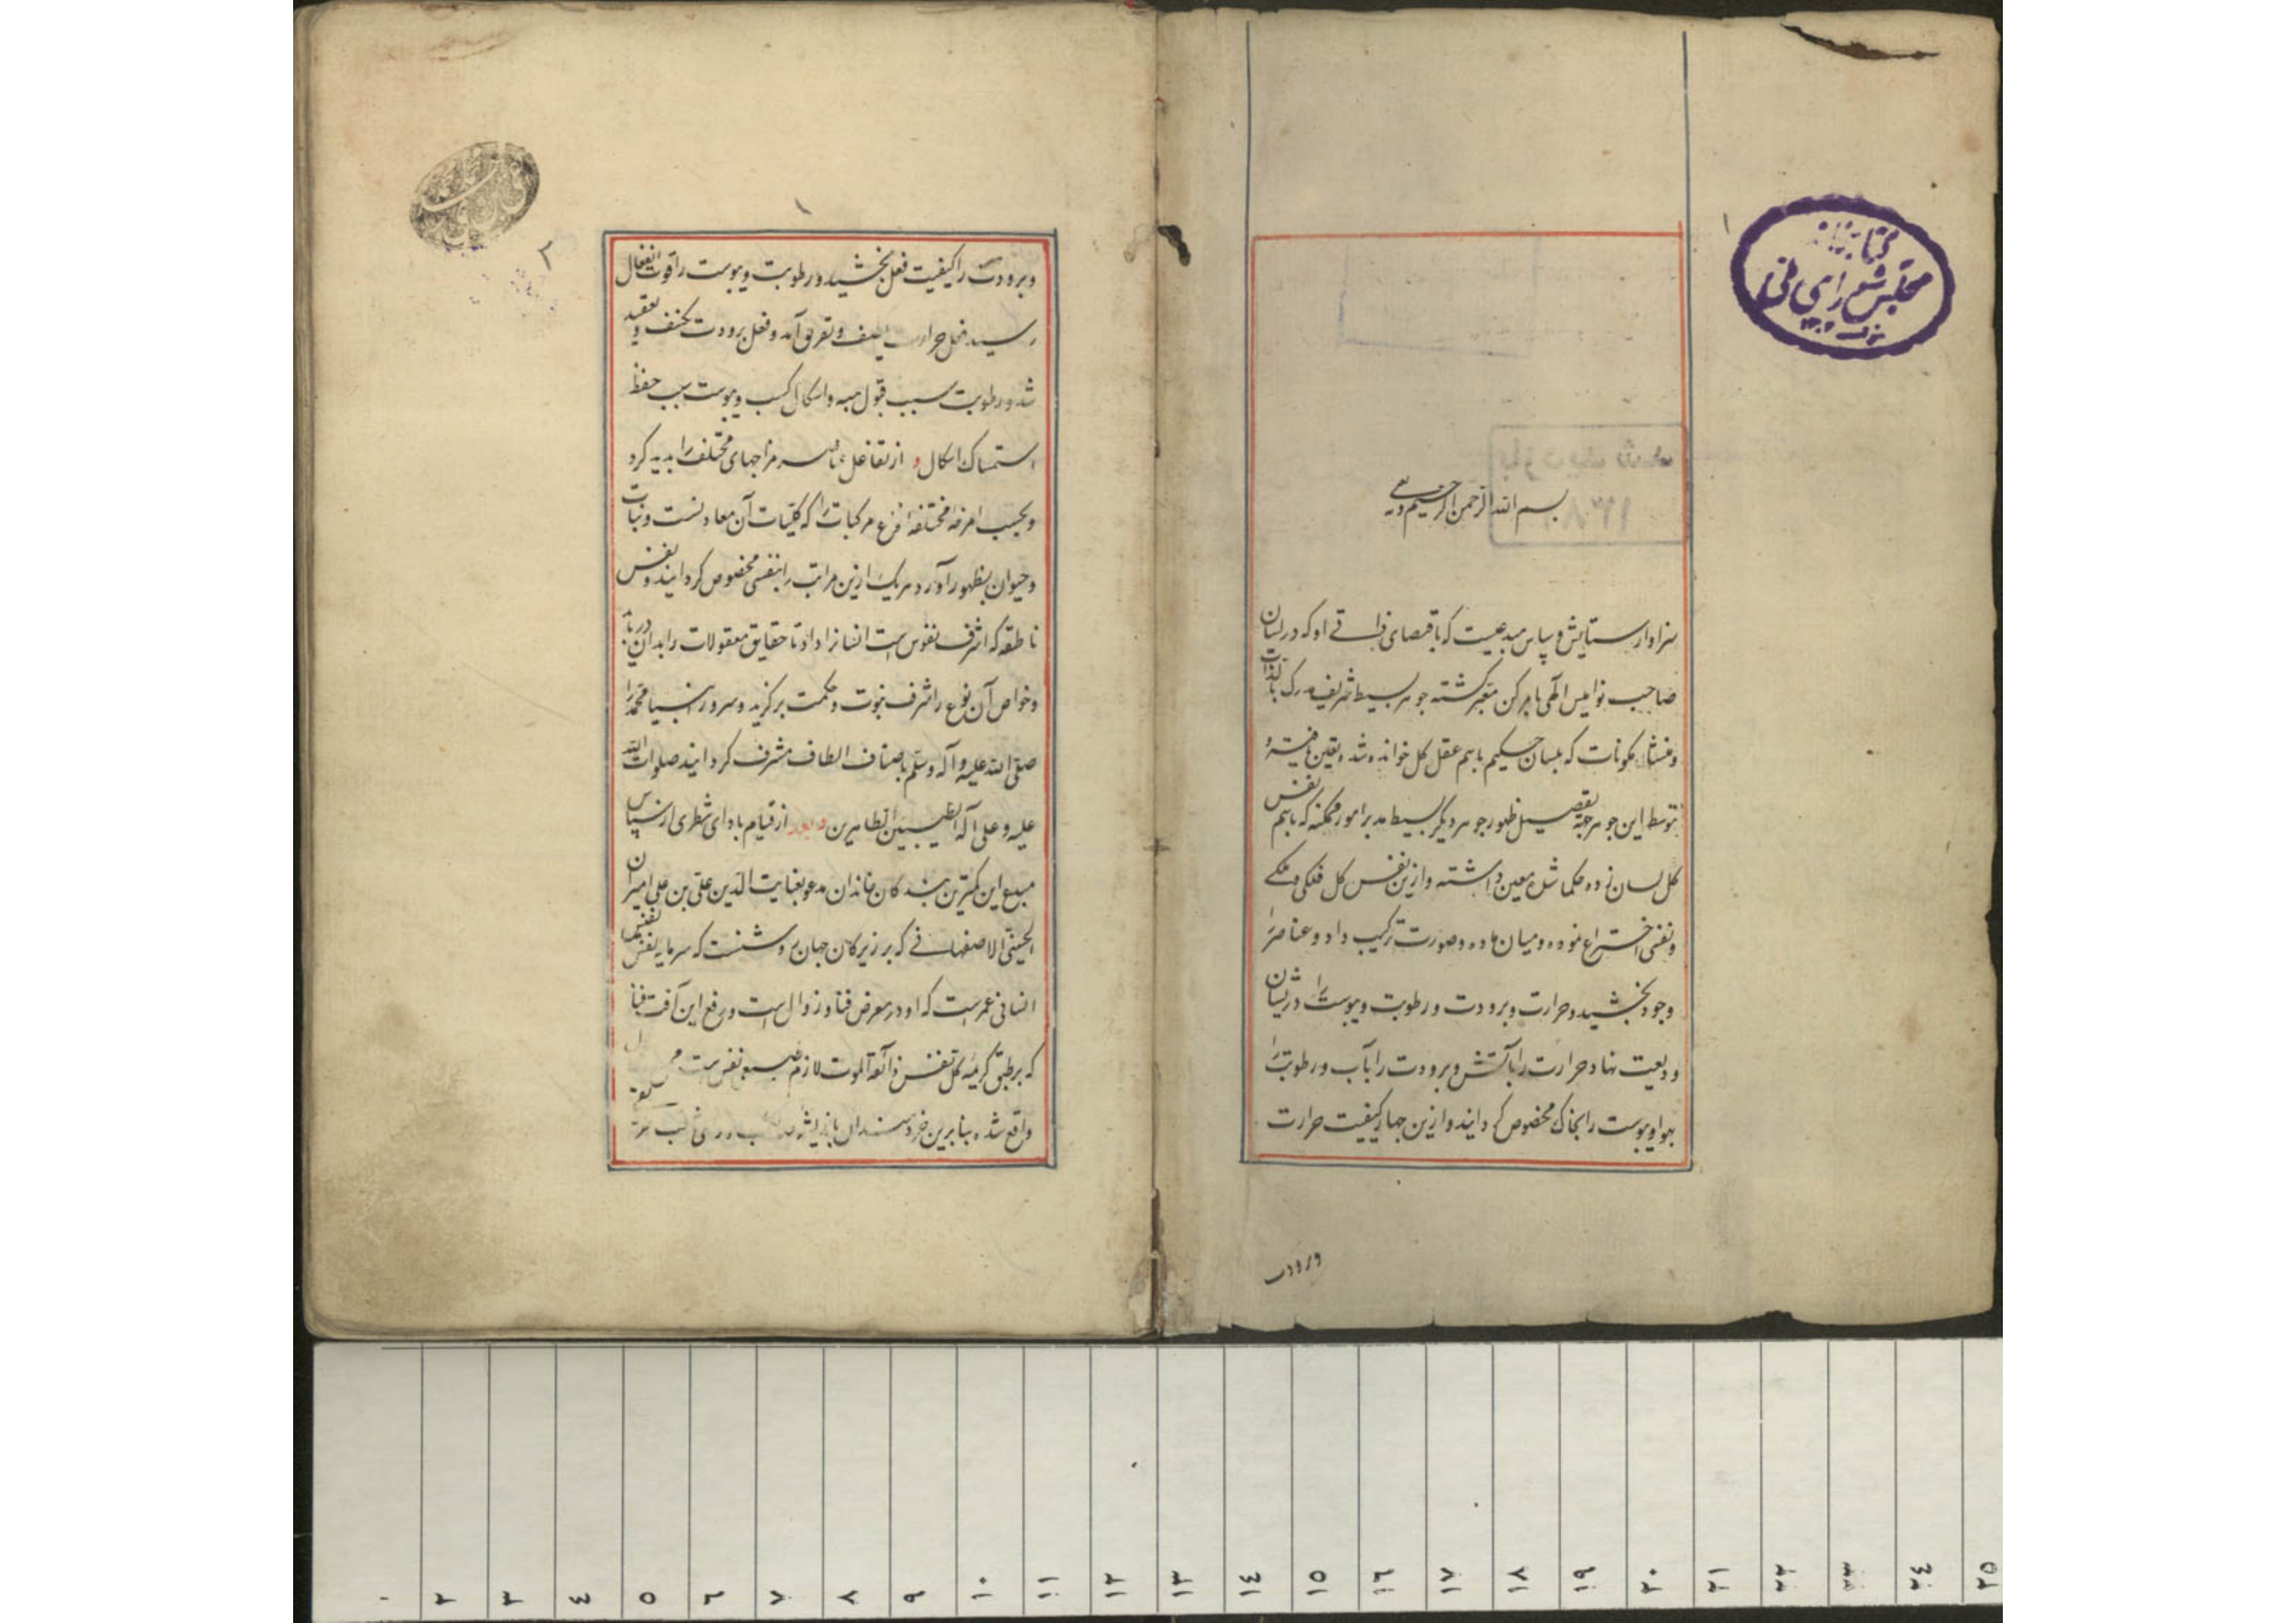 کتابخانه
مجلس شورای ملی
۱
بازدید شد
۱۳۸
بسم الله الرحمن الرحیم
سزاوار ستایش و سپاس مبدعیست که باقتضای ذاتی او که در لسان
صاحب نوامیس الهی بامر کن معبر گشته جوهر بسیط شریف مدرک بالذات
و منشاء مکونات که بلسان حکیم باسم عقل کل خوانده شده تعین یافته و
بتوسط این جوهر جهة تفصیل ظهور جوهر دیگر بسیط مدبر امور ممکنه که باسم نفس
کل لسان زده حکما شده معین داشته و ازین نفس کل فلکی و ملکی
و نفسی اختراع نموده و میان ماده و صورت ترکیب داد و عناصر را
وجود بخشید و حرارت و برودت و رطوبت و یبوست را دریشان
ودیعت نهاد و حرارت را بآتش و برودت را بآب و رطوبت را
بهوا و یبوست را بخاک مخصوص گردانید و ازین چهار کیفیت حرارت
و برودت
۲
و برودت را کیفیت فعل بخشید و رطوبت و یبوست را قوت انفعال
رسید فعل حرارت و تفریق آمد و فعل برودت تکثیف و تعقید
شد و رطوبت سبب قبول و اشکال کسب و یبوست سبب حفظ
استمساک اشکال و از تفاعل عناصر مزاجهای مختلف را پدید کرد
و بحسب امزجه مختلفه انواع مرکبات را که کلیات آن معادنست و نبات
و حیوان بظهور آورد و هر یک ازین مراتب را بنفسی مخصوص گردانید و نفس
ناطقه که اشرف نفوس است انسانرا داد تا حقایق معقولات را بدان دریابد
و خواص آن نوع را شرف نبوت و حکمت برگزید و سرور انبیا محمد را
صلی الله علیه و آله و سلم باصناف الطاف مشرف گردانید صلوات الله
علیه و علی آله الطیبین الطاهرین و بعد از قیام بادای شطری از سپاس
مبدع این کمترین بندگان خاندان مدعو بغیاث الدین علی بن علی امیران
الحسینی الاصفهانی که بر زیرکان جهان روشنست که سرمایه نفس
انسانی عمرست که او در معرض فنا و زوال است و رفع این آفت فنا
که بر طبق کریمه کل نفس ذائقة الموت لازم نفس است
واقع شده بنابرین خردمندان